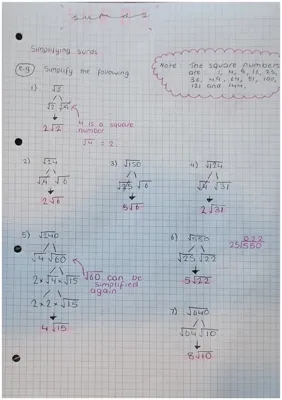 surds
Simplifying surds
e.g Simplify the following
Note: The square numbers
are 1, 4, 9, 16, 25,
36, 49, 64, 81, 100,
121 and 144.
1) √8
√2 √4
2√2
4 is a square
number
√4 = 2
2) √24
√4 √6
2√6
3) √150
√25 √6
5√6
4) √124
√4 √31
2√31
5) √240
√4 √60
2 × √4 × √15
2 × 2 × √15
4√15
√60 can be
simplified
again
6) √550
√25 √22
5√22
022
25 550
7) √640
√64 √10
8√10